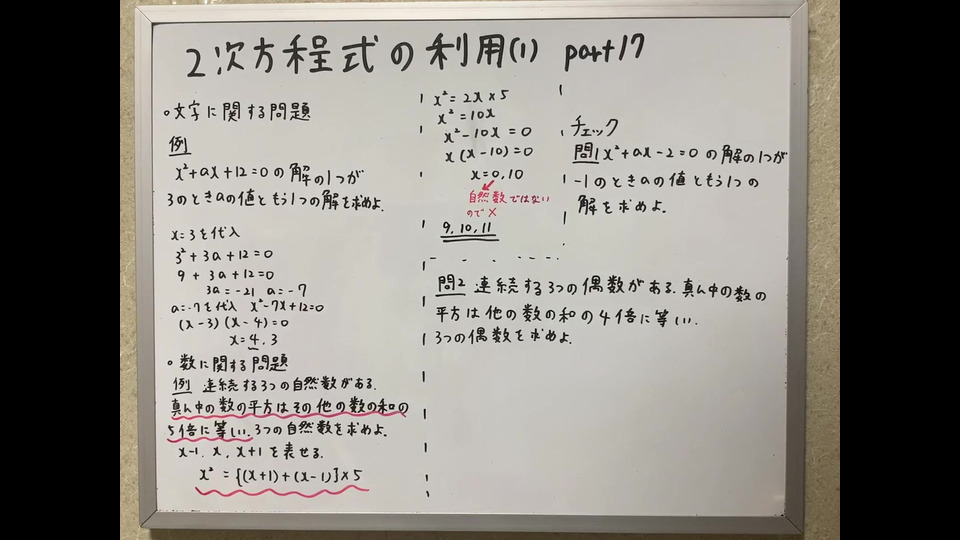 2次方程式の利用(1) part17
○文字に関する問題
例
x²+ax+12=0の解の1つが
3のときaの値ともう1つの解を求めよ.
x=3を代入
3²+3a+12=0
9+3a+12=0
3a=-21 a=-7
a=-7を代入 x²-7x+12=0
(x-3)(x-4)=0
x=4,3
○数に関する問題
例 連続する3つの自然数がある.
真ん中の数の平方はその他の数の和の
5倍に等しい.3つの自然数を求めよ.
x-1, x, x+1を表せる.
x²={(x+1)+(x-1)}×5
x²=2x×5
x²=10x
x²-10x=0
x(x-10)=0
x=0,10
自然数ではない
ので×
9,10,11
チェック
問1 x²+ax-2=0の解の1つが
-1のときaの値ともう1つの
解を求めよ.
問2 連続する3つの偶数がある.真ん中の数の
平方は他の数の和の4倍に等しい.
3つの偶数を求めよ.